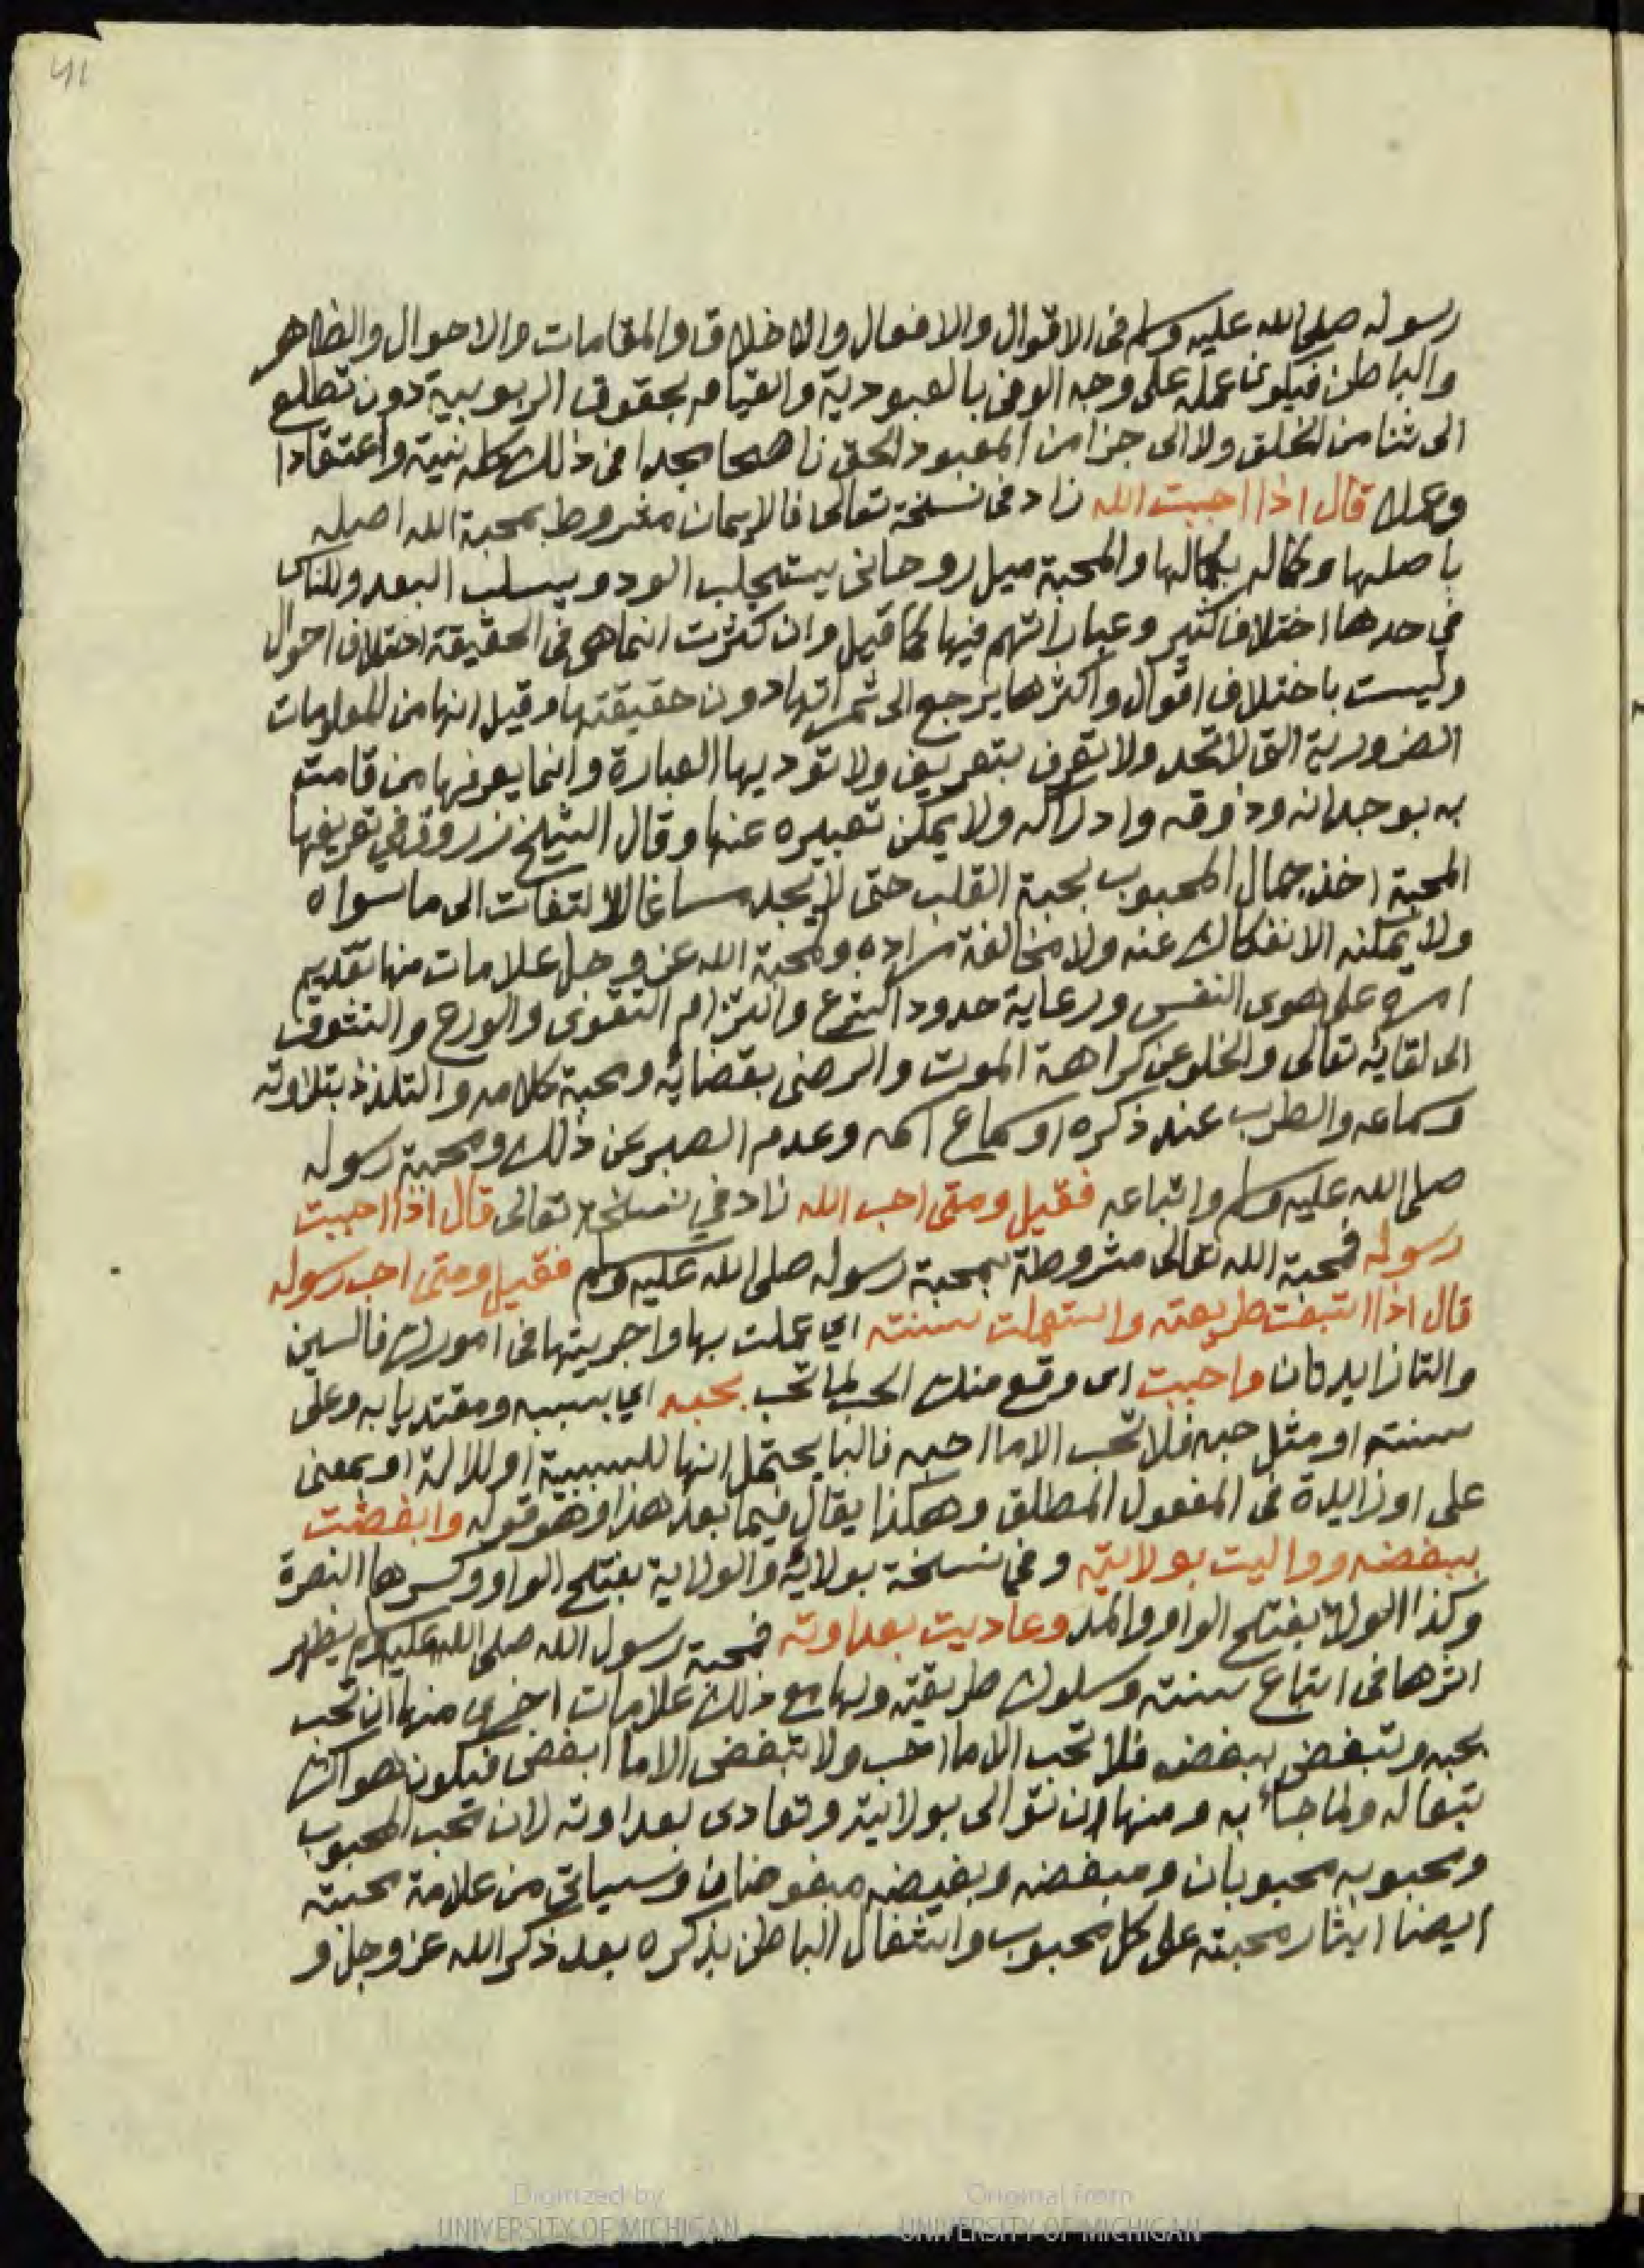 41
رسوله صلى الله عليه وسلم فى الاقوال والافعال والاخلاق والمقامات والاحوال والظاهر
والباطن فيكون عمله على وجه الوفى بالعبودية والقيام بحقوق الربوبية دون تطلع
الى ثنا من الخلق ولا الى جزا من المعبود الحق ناصحا مجدا فى ذلك كله نية واعتقادا
وعملا قال اذا احببت الله زاد فى نسخة تعالى فالايمان مشروط بمحبة الله اصله
باصلها وكماله بكمالها والمحبة ميل روحانى يستجلب الود ويسلب البعد وللناس
في حدها اختلاف كثير وعباراتهم فيها كما قيل وان كثرت انما هى فى الحقيقة اختلاف احوال
وليست باختلاف اقوال واكثرها يرجع الى ثمراتها دون حقيقتها وقيل انها من المعلومات
الضرورية التى لا تحد ولا تعرف بتعريف ولا تؤديها العبارة وانما يعرفها من قامت
به بوجدانه وذوقه وادراكه ولا يمكن تعبيره عنها وقال الشيخ زروق في تعريفها
المحبة اخذ جمال المحبوب بحبة القلب حتى لا يجد مساغا للالتفات الى ما سواه
ولا يمكنه الانفكاك عنه ولا مخالفة مراده ومحبة الله عز وجل علامات منها تقديم
امره على هوى النفس ورعاية حدود الشرع والتزام التقوى والورع والتشوف
الى لقائه تعالى والخلو عن كراهة الموت والرضى بقضائه ومحبة كلامه والتلذذ بتلاوته
وسماعه والطرب عند ذكره او سماع اسمه وعدم الصبر عن ذلك ومحبة رسوله
صلى الله عليه وسلم واتباعه فقيل ومتى احب الله زاد في نسخة تعالى قال اذا احببت
رسوله فمحبة الله تعالى مشروطة بمحبة رسوله صلى الله عليه وسلم فقيل ومتى احب رسوله
قال اذا اتبعت طريقته واستعملت سنته اي عملت بها واجريتها فى امورك فالسين
والتا زايدتان واحببت اى وقع منك الحب لما تحب بحبه اي بسببه ومقتديا به وعلى
سننه او مثل حبه فلا تحب الا ما احبه فالبا يحتمل انها للسببية او للالة او بمعنى
على او زايدة فى المفعول المطلق وهكذا يقال فيما بعد هذا وهو قوله وابغضت
ببغضه وواليت بولايته وفي نسخة بولائه والولاية بفتح الواو وكسرها النصرة
وكذا الولا بفتح الواو والمد وعاديت بعداوته فمحبة رسول الله صلى الله عليه وسلم يظهر
اثرها فى اتباع سنته وسلوك طريقته ولها مع ذلك علامات اخرى منها ان تحب
بحبه وتبغض ببغضه فلا تحب الا ما احب ولا تبغض الا ما ابغض فيكون هواك
تبعا له ولما جاء به ومنها ان توالى بولايته وتعادى بعداوته لان محب المحبوب
ومحبوبه محبوبان ومبغضه وبغيضه مبغوضان وسياتى من علامة محبته
ايضا ايثار محبته على كل محبوب واشتغال الباطن بذكره بعد ذكر الله عز وجل و
Digitized by
UNIVERSITY OF MICHIGAN
Original from
UNIVERSITY OF MICHIGAN